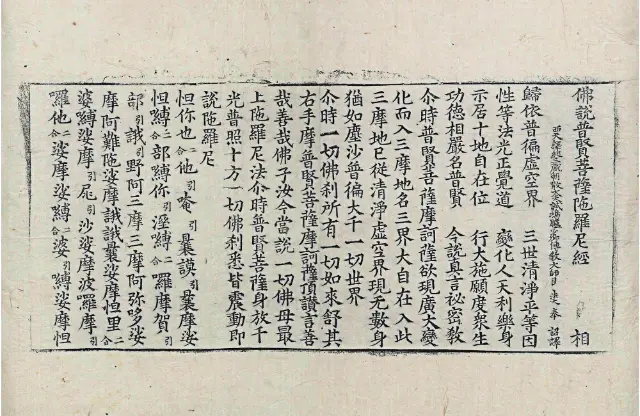 佛說普賢菩薩陁羅尼經 相
譯經三藏朝散大夫試鴻臚少卿傳教大師臣 奉 詔譯
歸依普徧虛空界 三世清淨平等因
性等法光正覺道 變化人天利樂身
示居十地自在位 行大施願度衆生
功德相嚴名普賢 今說真言祕密教
尒時普賢菩薩摩訶薩欲現廣大變
化而入三摩地名三界大自在入此
三摩地已從清淨虛空界現无數身
猶如塵沙普徧大千一切世界
尒時一切佛刹所有一切如來舒其
右手摩普賢菩薩摩訶薩頂讚言善
哉善哉佛子汝今當說一切佛母最
上陁羅尼法尒時普賢菩薩身放千
光普照十方一切佛刹悉皆震動即
說陁羅尼
怛你也二合他引唵引曩謨引曩摩娑
怛嚩二合部嚩你引溼嚩二合囉摩賀引
部引誐引野阿三摩三摩阿弥哆娑
摩阿難陁娑摩誐誐曩娑摩怛里二合
婆嚩娑摩引尾引沙娑摩波囉摩引
囉他二合娑摩娑嚩二合婆引嚩娑摩怛